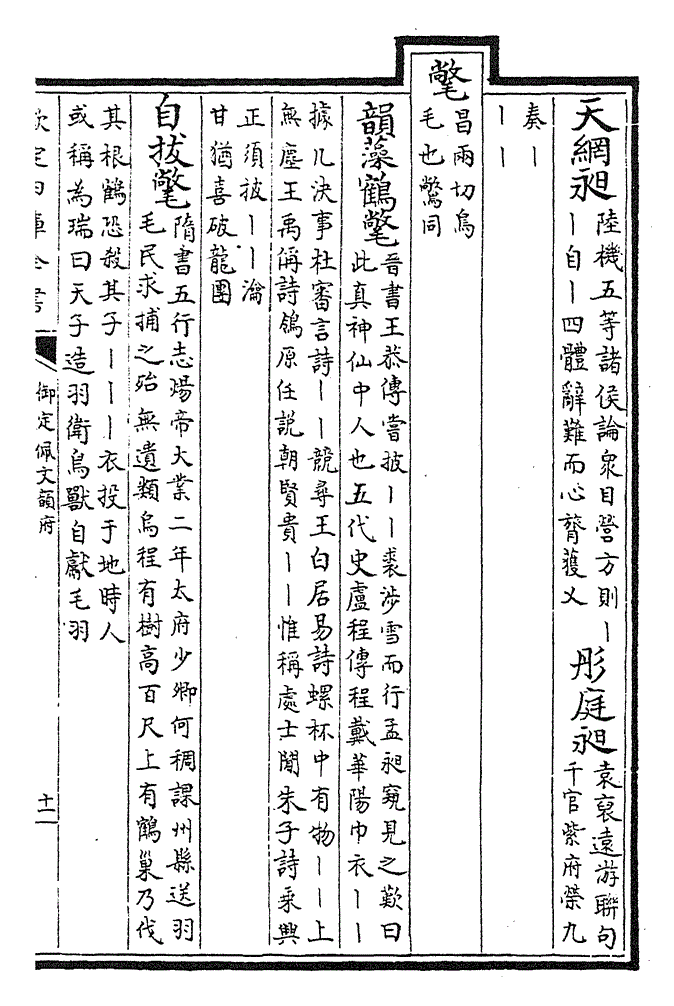 天網昶
陸機五等諸侯論衆目營方則丨
丨自丨四體辭難而心膂獲乂
彤庭昶
袁裒遠游聯句
千官紫府榮九
奏丨
丨丨
氅
昌兩切鳥
毛也鷩同
韻藻鶴氅
晉書王恭傳嘗披丨丨裘涉雪而行孟昶窺見之歎曰
此真神仙中人也五代史盧程傳程戴華陽巾衣丨丨
據几決事杜審言詩丨丨競尋王白居易詩螺杯中有物丨丨上
無塵王禹偁詩鴒原任説朝賢貴丨丨惟稱處士閒朱子詩乘興
正須披丨丨瀹
甘猶喜破龍團
自拔氅
隋書五行志煬帝大業二年太府少卿何稠課州縣送羽
毛民求捕之殆無遺類烏程有樹高百尺上有鶴巢乃伐
其根鶴恐殺其子丨丨丨衣投于地時人
或稱為瑞曰天子造羽衛鳥獸自獻毛羽
欽定四庫全書
御定佩文韻府
十二